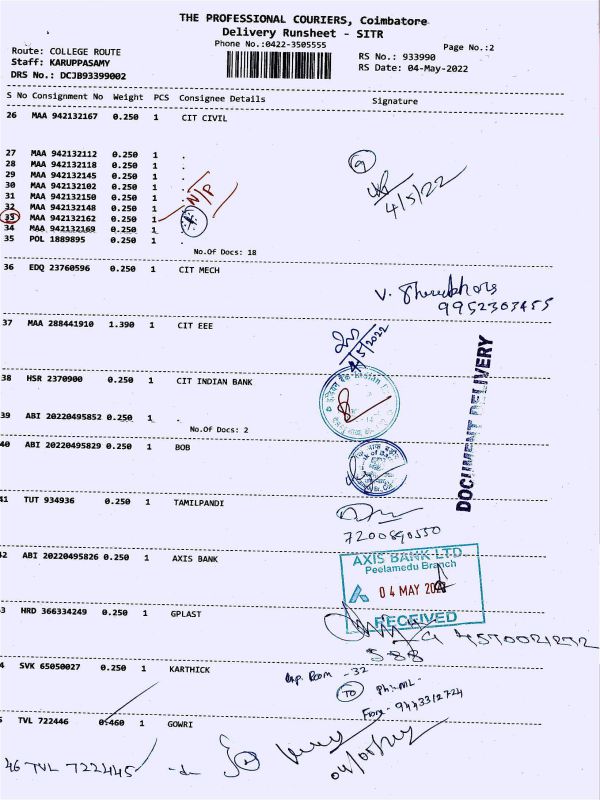 THE PROFESSIONAL COURIERS, Coimbatore
Delivery Runsheet - SITR
Phone No.:0422-3505555
Page No.:2
Route: COLLEGE ROUTE
RS No.: 933990
Staff: KARUPPASAMY
RS Date: 04-May-2022
DRS No.: DCJB93399002
S No Consignment No Weight PCS Consignee Details Signature
26 MAA 942132167 0.250 1 CIT CIVIL
27 MAA 942132112 0.250 1 .
28 MAA 942132118 0.250 1 .
29 MAA 942132145 0.250 1 .
30 MAA 942132102 0.250 1 .
31 MAA 942132150 0.250 1 .
32 MAA 942132148 0.250 1 .
33 MAA 942132162 0.250 1 .
34 MAA 942132169 0.250 1 .
35 POL 1889895 0.250 1 .
N/P
9
4/5/22
No.Of Docs: 18
36 EDQ 23760596 0.250 1 CIT MECH
V.
9952303455
37 MAA 288441910 1.390 1 CIT EEE
4/5/2022
38 HSR 2370900 0.250 1 CIT INDIAN BANK
39 ABI 20220495852 0.250 1 .
No.Of Docs: 2
DOCUMENT DELIVERY
40 ABI 20220495829 0.250 1 BOB
41 TUT 934936 0.250 1 TAMILPANDI
7200890550
42 ABI 20220495826 0.250 1 AXIS BANK
AXIS BANK LTD.
Peelamedu Branch
04 MAY 2022
RECEIVED
3 HRD 366334249 0.250 1 GPLAST
588
4 SVK 65050027 0.250 1 KARTHICK
Room - 32
TO
9443312724
5 TVL 722446 0.460 1 GOWRI
46 TVL 722445
04/05/2022